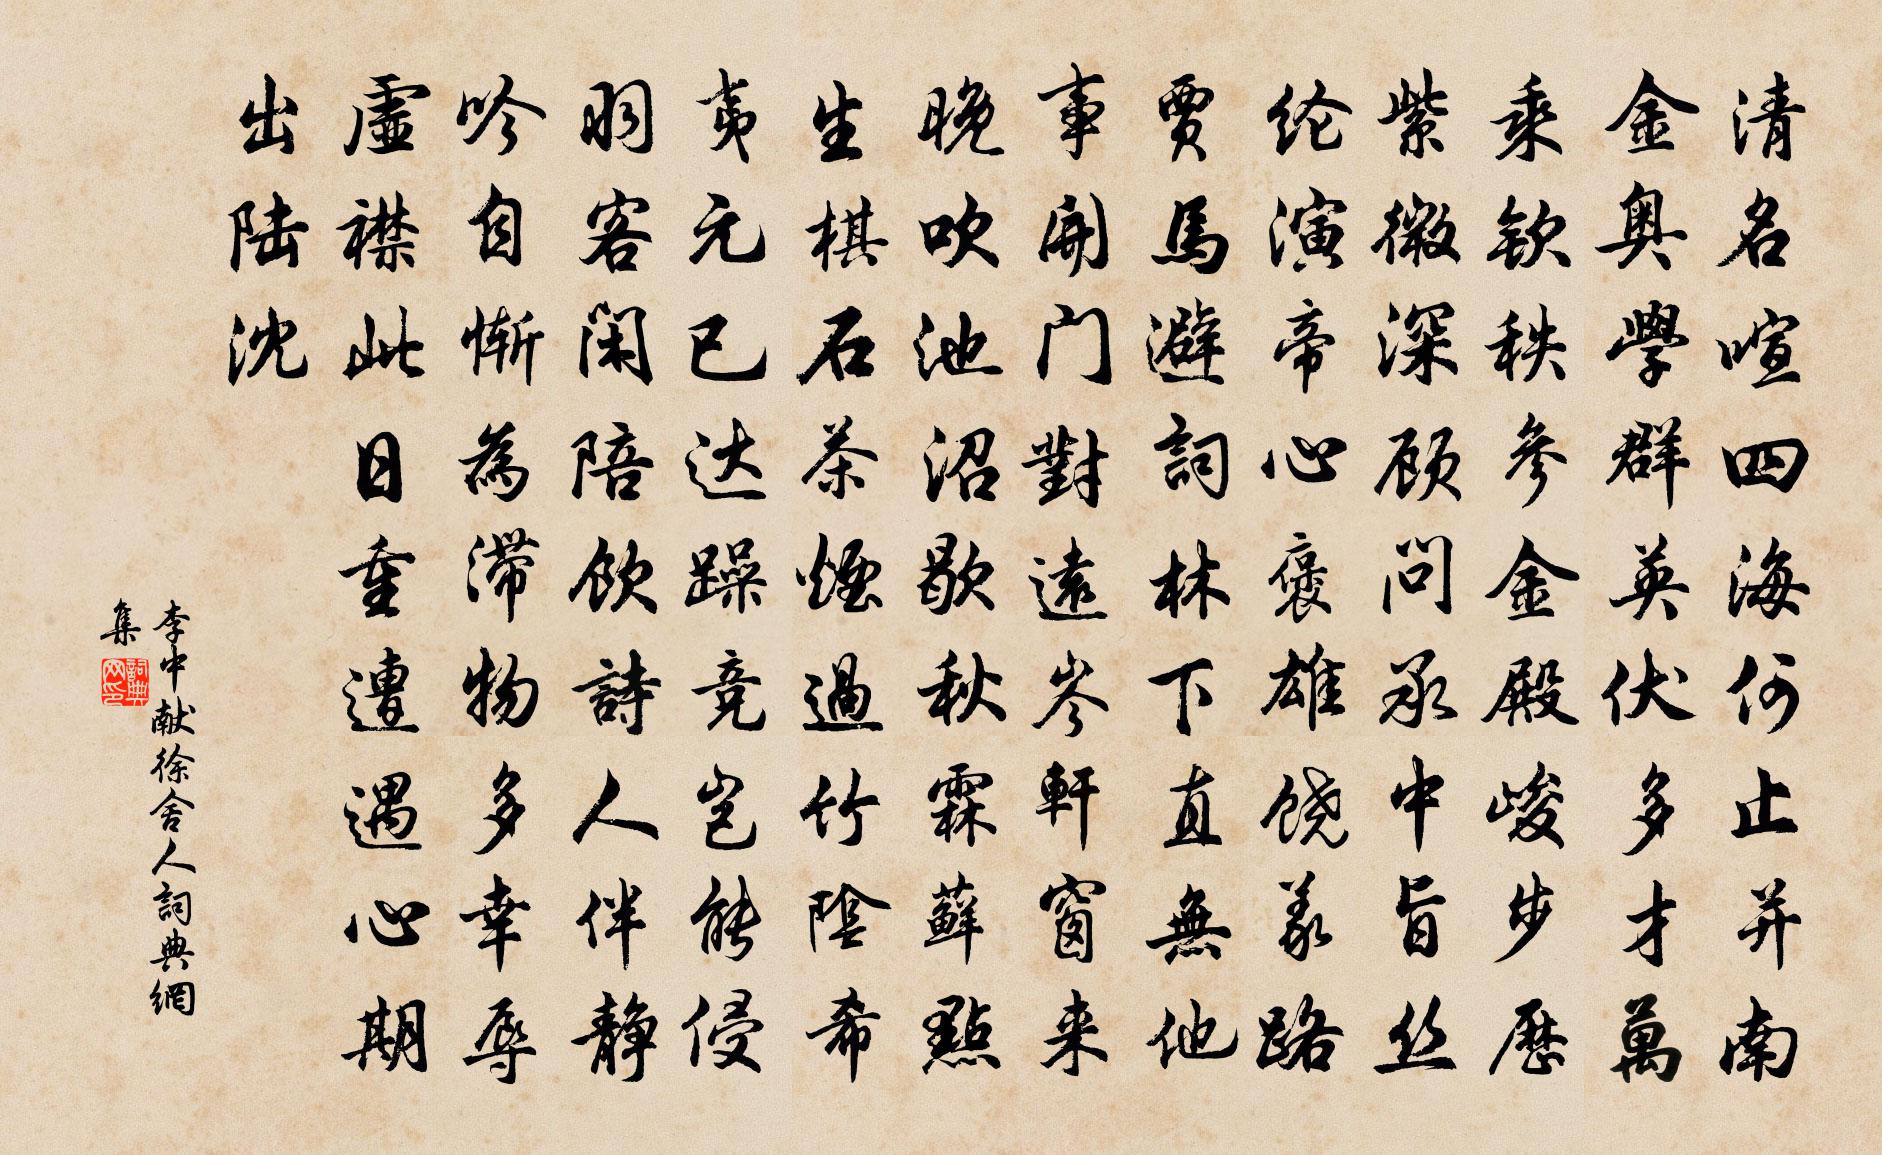 清名喧四海何止并南
金奥學群英伏多才萬
乘欽秩參金殿峻步歷
紫微深顾問承中旨丝
纶演帝心褒雄饶義路
賈馬避詞林下直無他
事開门對遠岑軒窗来
晚吹池沼歇秋霖蘚點
生棋石茶煙過竹陰希
夷元已达躁竞岂能侵
羽客閑陪飲詩人伴静
吟自惭為滞物多幸辱
虛襟此日重遭遇心期
出陆沈
李中献徐舍人詞典網
集
詞典网印